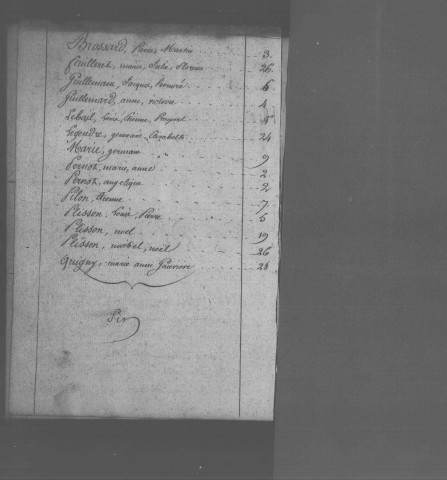 Brossard, Pierre Martin 3
Guilleret, marie, Julie, Florence 26
Guillemard, Jacques, honoré 6
Guillemard, anne, victoire 4
Lebail, Louis, Etienne, Prosper 5
Legendre, germain, Elisabeth 24
Marie, germain 9
Pernot, marie, anne 2
Pernot, angelique 2
Pilon, Etienne 7
Plisson, Louis, Pierre 5
Plisson, noel 19
Plisson, michel, noel 26
Quigny, marie anne 28
Fin